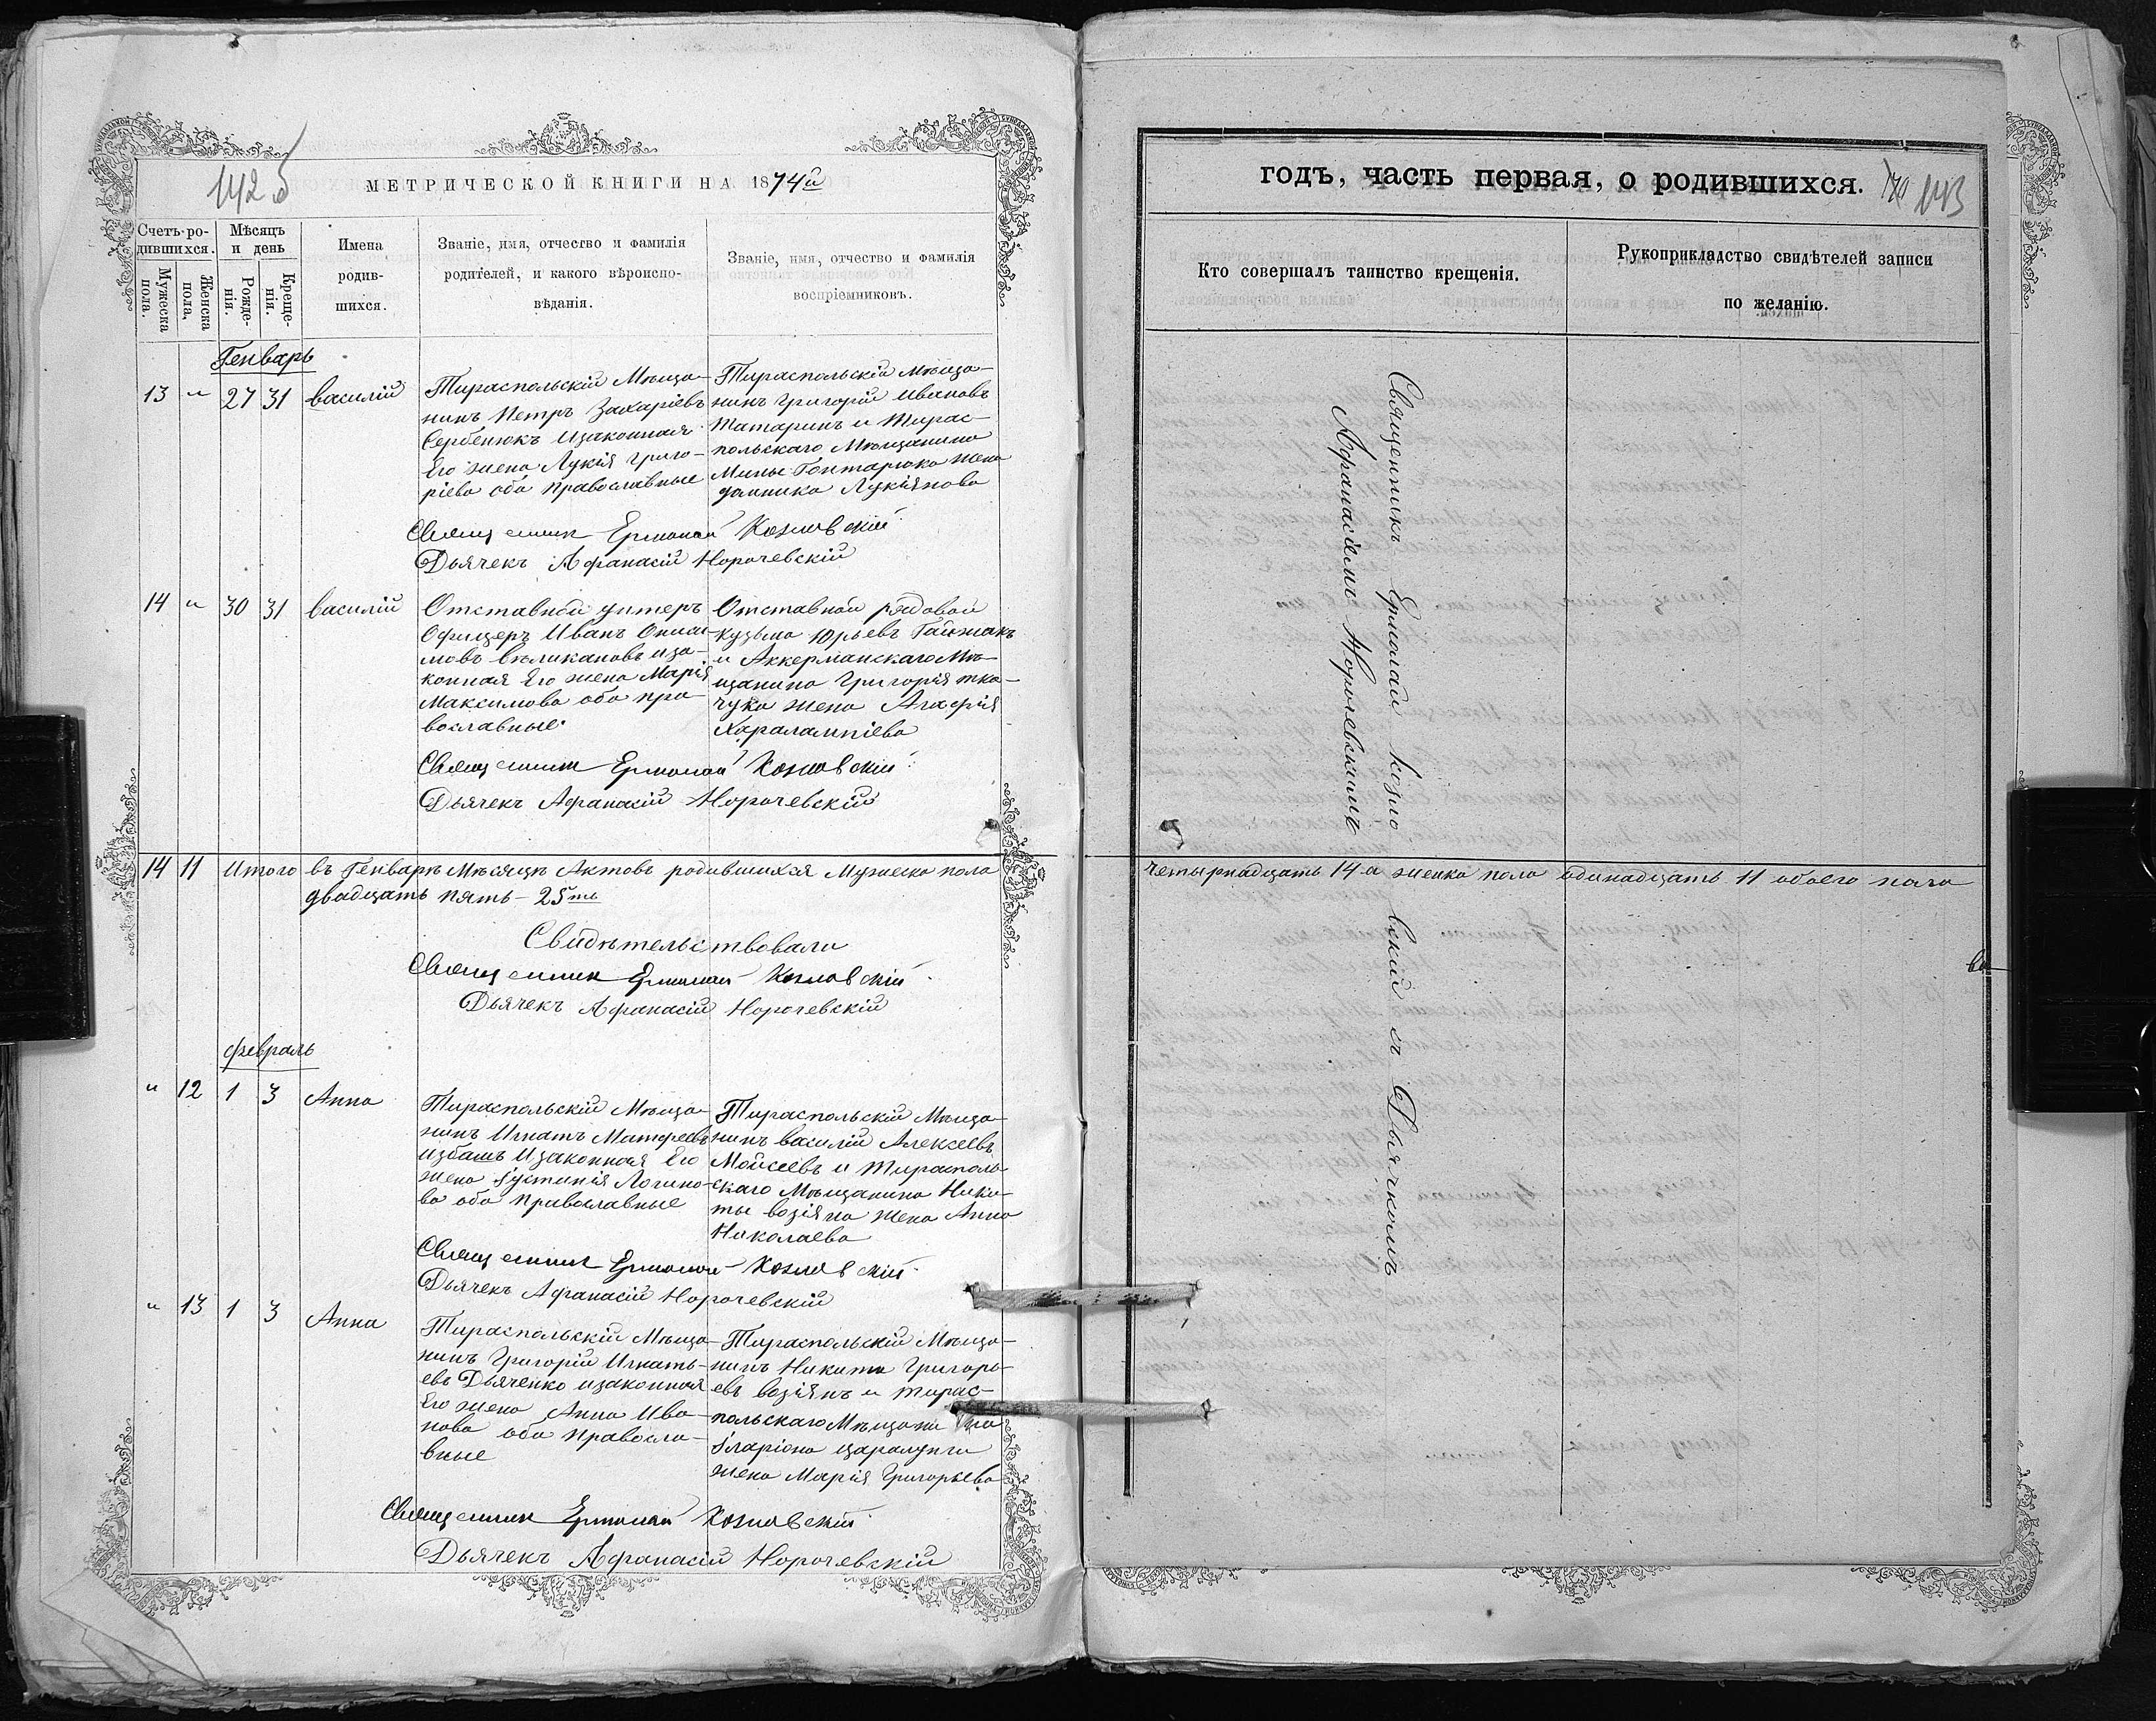 142 б
МЕТРИЧЕСКОЙ КНИГИ НА 1874й
Счетъ ро-
дившихся.
Мужеска
пола.
Женска
пола.
Мѣсяцъ
и день
Рожде-
нія.
Креще-
нія.
Имена
родив-
шихся.
Званіе, имя, отчество и фамилія
родителей, и какого вѣроиспо-
вѣданія.
Званіе, имя, отчество и фамилія
воспріемниковъ.
Генварь
13 " 27 31 василій
Тираспольскій Мѣща-
нинъ Петръ Захаріевъ
Сербенюкъ изаконная
Его жена Лукія Григо-
ріева оба православные
Тираспольскій мѣща-
нинъ Григорій Ивановъ
Татаринъ и Тирас-
польскаго Мѣщанина
Мины Гонтарюка жена
Домника Лукіянова
Священникъ Ермолай Козловскій
Дьячекъ Афанасій Норочевскій
14 " 30 31 василій
Отставной унтеръ
Офицеръ ИванъОниси-
мовъ великановъ иза-
конная Его жена Марія
Максимова оба пра-
вославные
Отставной рядовой
кузьма Юрьевъ Гайжакъ
и Аккерманскаго Мѣ-
щанина Григорія тка-
чука жена Агафія
Харалампіева
Священникъ Ермолай Козловскій
Дьячекъ Афанасій Норочевскій
14 11 Итого въ Генварѣ Мѣсяцѣ Актовъ родившихся Мужеска пола
двадцать пять - 25ть
Свидѣтельствовали
Священникъ Ермолай Козловскій
Дьячекъ Афанасій Норочевскій
февраль
" 12 1 3 Анна
Тираспольскій Мѣща-
нинъ Игнатъ Матфеевъ
избашъ изаконная Его
жена Іустинія Логино-
ва оба православные
Тираспольскій Мѣща-
нинъ василій Алексеевъ
Мойсеевъ и тирасполь-
скаго Мѣщанина Ники-
ты возіяна жена Анна
Николаева
Священникъ Ермолай Козловскій
Дьячекъ Афанасій Норочевскій
" 13 1 3 Анна
Тираспольскій Мѣща-
нинъ Григорій Игнать-
евъ Дьяченко изаконная
Его жена Анна Ива-
нова оба правосла-
вные
Тираспольскій Мѣща-
нинъ Никита Григорь-
евъ возіянъ и тирас-
польскаго Мѣщанина
Іларіона царалунги
жена Марія Григорьева
Священникъ Ермолай Козловскій
Дьячекъ Афанасій Норочевскій
годъ, часть первая, о родившихся.
143
Кто совершалъ таинство крещенія.
Рукоприкладство свидѣтелей записи
по желанію.
Священникъ Ермолай Козло
вскій съ Дьячкомъ
Афанасіемъ Норочевскимъ
четырнадцать 14-а женска пола одинадцать 11 обоего пола